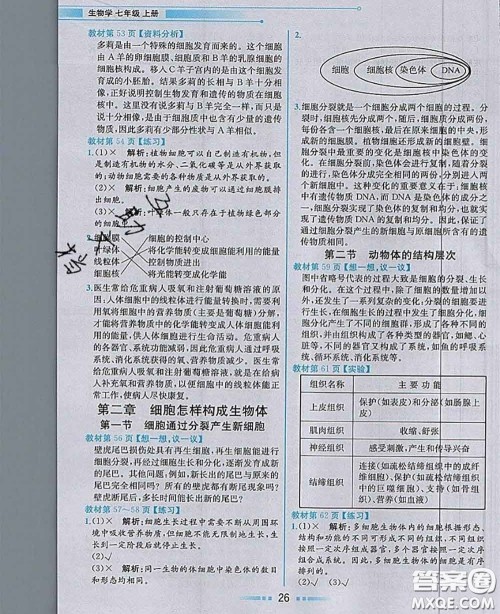 生物学 七年级 上册
教材第 53 页【资料分析】
多莉是由一个特殊的细胞发育而来的。这个细胞
由 A 羊的卵细胞膜、细胞质和 B 羊的乳腺细胞的
细胞核构成。移入 C 羊子宫内的是由这个细胞发
育成的小胚胎。长大后的多莉与 B 羊十分相
像,正好说明控制生物发育和遗传的物质在细胞
核中。这里没有说多莉与 B 羊完全一样,而只是
说十分相像,是由于细胞质中也含有少量的遗传
物质,因此多莉有少部分性状与 A 羊相似。
教材第 54 页【练习】
1.(1)× 解析:植物细胞可以自己制造有机物,但
是制造有机物的水分、二氧化碳等是从外界获取
的;动物细胞需要的各种物质是从外界获取的。
(2)× 解析:细胞产生的废物可以通过细胞膜排
出细胞。
(3)×
体一般只存在于植物绿色部分
的细胞中。
细胞膜 细胞的控制中心
叶绿体 将化学能转变成细胞能利用的能量
线粒体 控制物质进出
细胞核 将光能转变成化学能
3.医生常给危重病人吸氧和注射葡萄糖溶液的原
因:人体细胞中的线粒体进行能量转换时,需要氧
的参与,危重病人吸入的氧,通过体内的物质运输,
才能将营养物质(主要是葡萄糖)分解,
将营养物质中的化学能转变成人体细胞能利用的
能量,供人体细胞进行生命活动。危重病人
的各器官、系统功能减弱,因此自身难以通过呼吸
系统、消化系统获得的氧、营养物质减少。医生常
给危重病人吸氧和注射葡萄糖溶液,就是在给病
人补充氧和营养物质,以便细胞中的线粒体能正
常工作,使病人尽快康复。
第二章 细胞怎样构成生物体
第一节 细胞通过分裂产生新细胞
教材第 56 页【想一想,议一议】
壁虎尾巴损伤处具有再生细胞,进行细胞分裂产
生新细胞,再经过细胞生长和分化,逐渐发育成新
的尾巴。其他问题,例如,新长出的尾巴与原来尾
巴完全相同吗?所有的壁虎都有断尾现象吗?
壁虎断尾后,多长时间能长出新的尾巴?
教材第 57~58 页【练习】
1.(1)× 解析:细胞生长过程中需要不断从周围环
境中吸收营养物质,并转变成自身的物质,体积会
由小变大。
(2)× 解析:同一生物的体细胞中染色体的数目
和形态均相同。
2.
细胞 细胞核 染色体 DNA
3.细胞分裂就是一个细胞分成两个细胞的过程。分
裂时,细胞核先分成两个,随后,细胞质分成两份,
每份各含一个细胞核,最后在原来细胞的中央,形
成新的细胞膜。植物细胞还形成新的细胞壁。细胞
分裂中最重要的变化是细胞核中染色体的变
化。在细胞分裂前,染色体会进行复制,随着分裂
的进行,染色体分成完全相同的两份,分别进入两
个新细胞中。这种变化的重要意义在于:细胞核中
有遗传物质 DNA,而 DNA 是染色体的成分之
一,分裂时实现了染色体的复制和均分,也就实现
了遗传物质的复制和均分,从而保证了新细胞与原细胞所含
的遗传物质相同。
第二节 动物体的结构层次
教材第 59 页【想一想,议一议】
图中省略号代表的过程大致是细胞的分裂、生长
和分化。在这个过程中,除了细胞的数目增多外,
还发生了一系列复杂的变化。分裂形成的子细胞
能生长,在胚胎生长的过程中发生了细胞分化,细
胞分化产生了不同的细胞群,这些细胞群形成不
同的组织,进而由组织构成了各种类型的器官,如鳃、心
脏等,不同的器官构成了不同的系统,如呼吸系
统、消化系统等。
教材第 61 页【实验】
组织名称 主要功能
上皮组织 保护(如表皮)和分泌(如肠腺上皮)
肌肉组织 收缩、舒张
神经组织 感受刺激,产生和传导兴奋
结缔组织 连接(如疏松结缔组织中的纤维)、保护(如疏松结缔组织中的巨噬细胞)、支持(如骨组织)、营养(如血液)
教材第 62 页【练习】
1.(1)× 解析:多细胞生物体内的细胞根据形态、
结构和功能的不同可形成不同的组织,不同组织
按照一定次序组成器官,多个器官按照一定次序
组成系统。因此,多细胞生物体内的细胞是有
序的。
26
答案圈
MXQE.COM